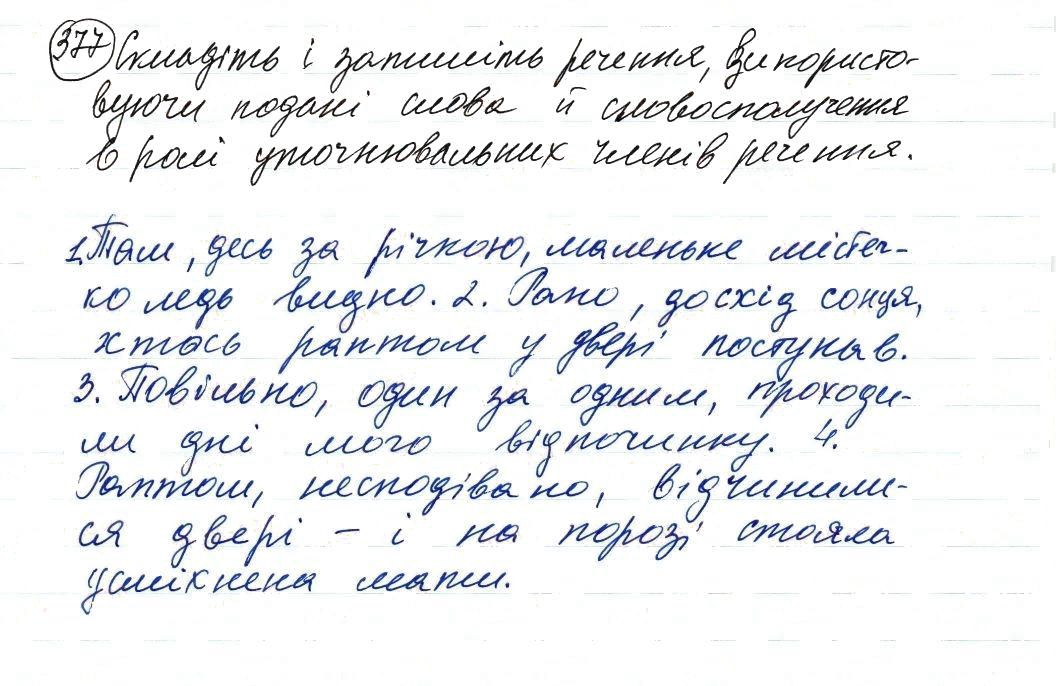 377 Складіть і запишіть речення, використо-
вуючи подані слова й словосполучення
в ролі уточнювальних членів речення.
1. Там, десь за річкою, маленьке містеч-
ко ледь видно. 2. Рано, досхід сонця,
хтось раптом у двері постукав.
3. Повільно, один за одним, проходи-
ли дні мого відпочинку. 4.
Раптом, несподівано, відчинили-
ся двері – і на порозі стояла
усміхнена мати.